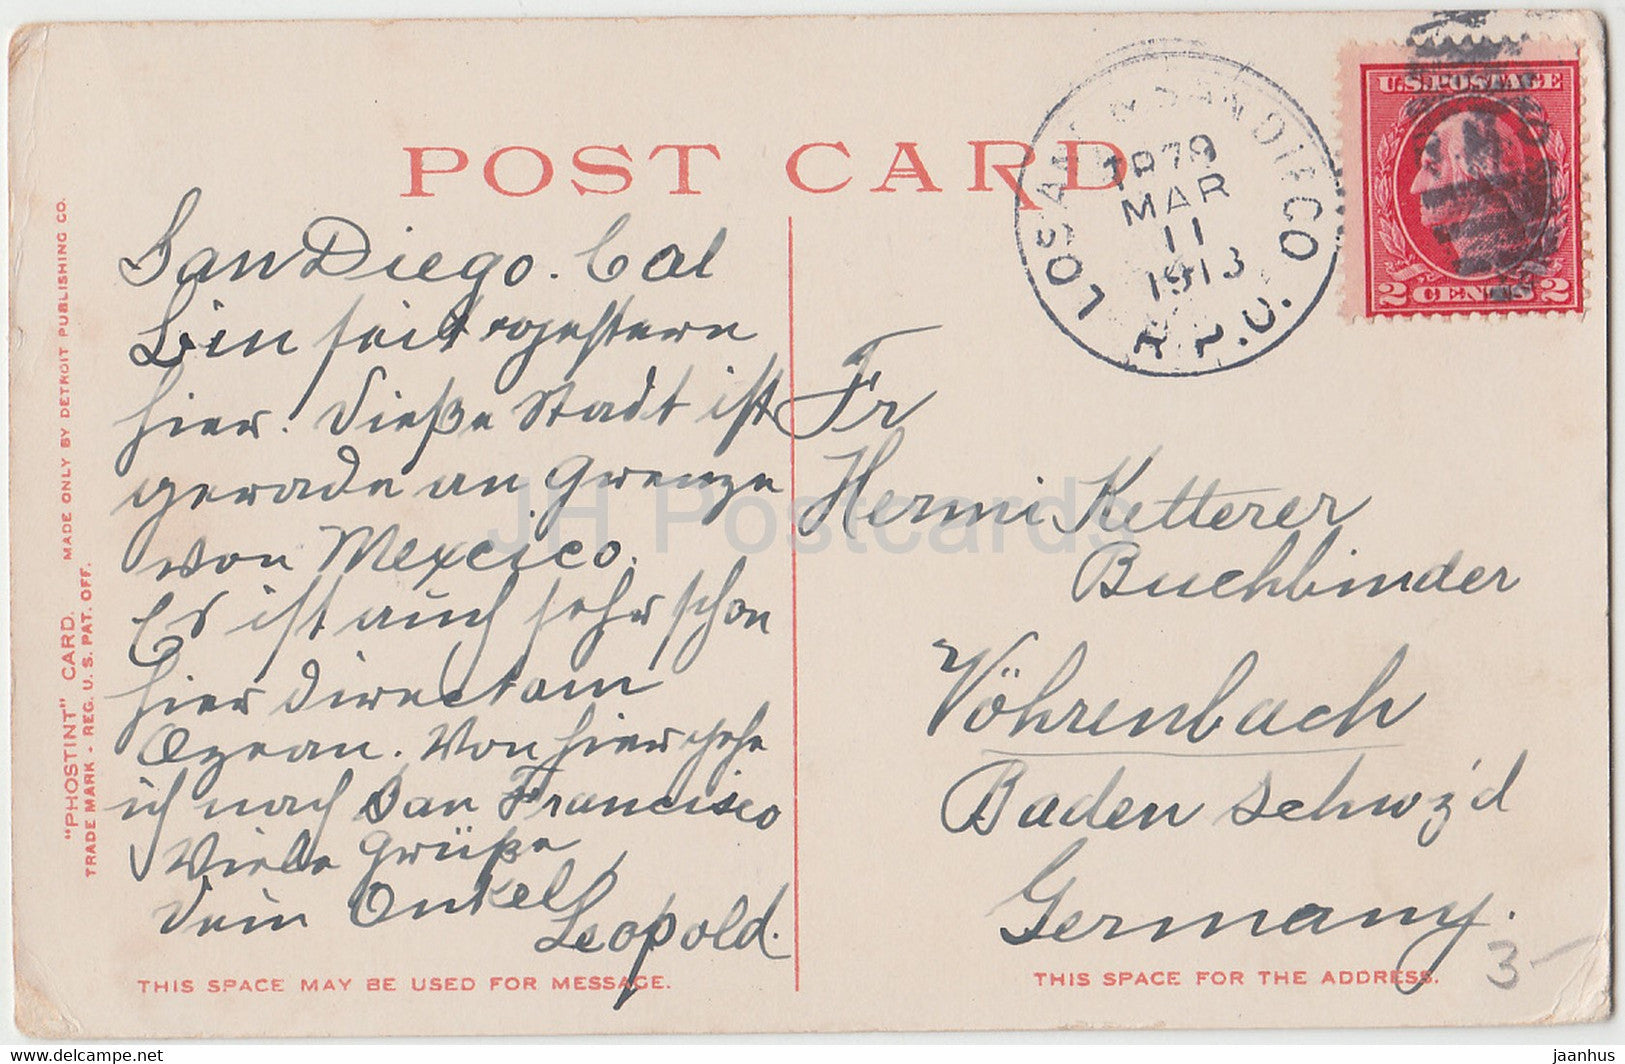 POST CARD
San Diego. Cal
Bin seit vorgestern
hier. Dieße Stadt ist
gerade an Grenze
von Mexcico.
Es ist auch sehr schön
hier direct am
Ozean. Von hier gehe
ich nach San Francisco
Viele Grüße
Dein Onkel
Leopold.
THIS SPACE MAY BE USED FOR MESSAGE.
"PHOSTINT" CARD. MADE ONLY BY DETROIT PUBLISHING CO.
TRADE MARK - REG. U. S. PAT. OFF.
LOS ANG & SAN DIEGO
MAR
11
1913
R.P.O.
U.S. POSTAGE
2 CENTS 2
Fr
Hermi Ketterer
Buchbinder
Vöhrenbach
Baden Schwz'd
Germany.
THIS SPACE FOR THE ADDRESS.
3-
JH Postcards
delcampe.net
jaanhus